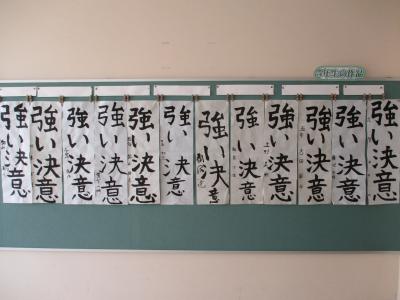 強い決意
強い決意
強い決意
強い決意
強い決意
強い決意
強い決意
強い決意
強い決意
強い決意
強い決意
強い決意